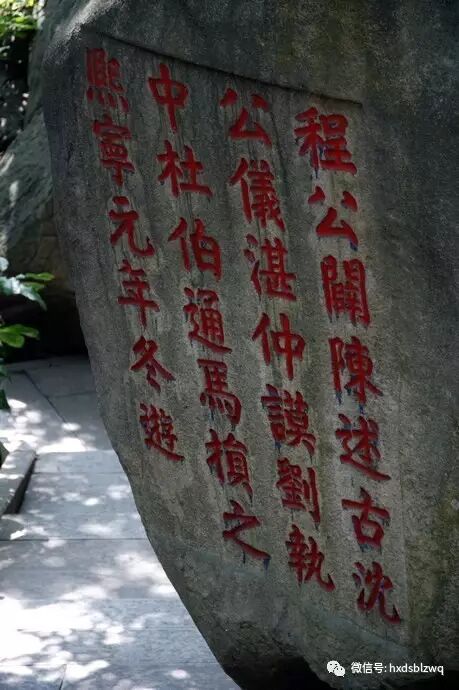 程公闢陳述古沈
公儀湛仲謨劉執
中杜伯通馬損之
熙寧元年冬遊
微信号: hxdsblzwq